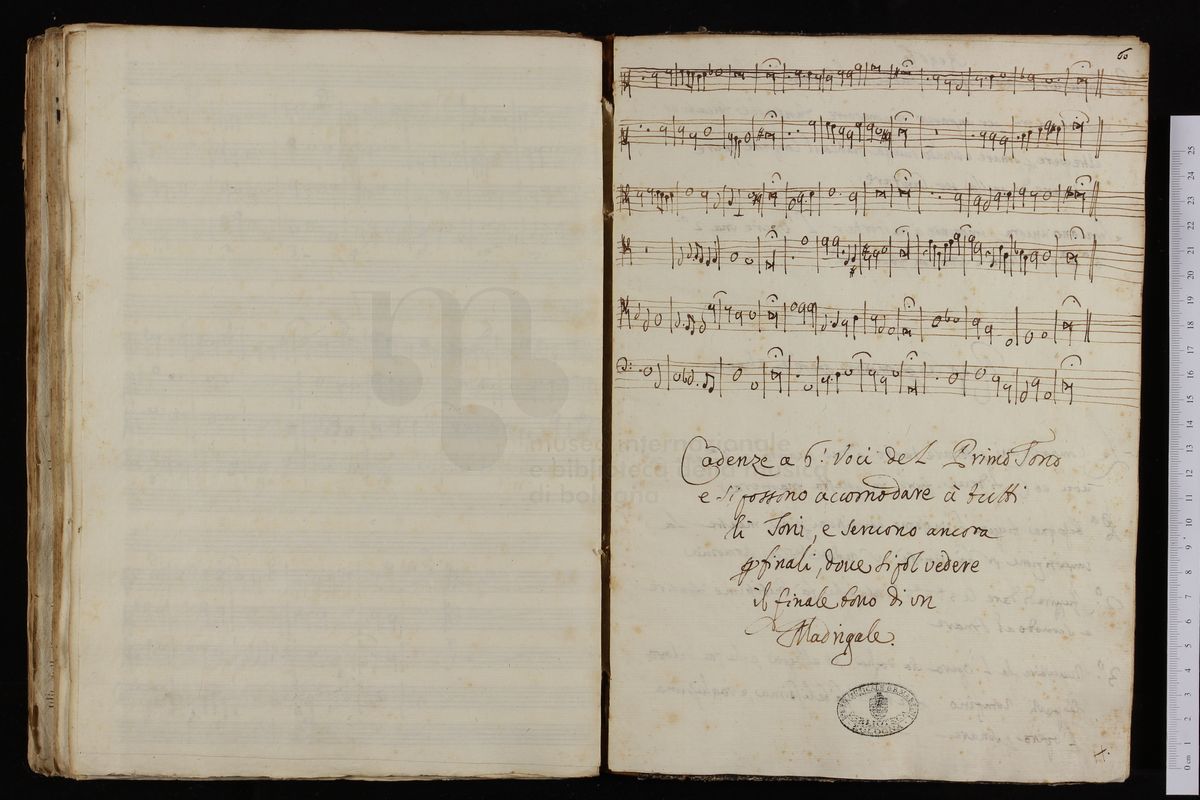 60
Cadenze a 6. Voci del Primo Tono
e si possono accomodare à tutti
li Toni, e servono ancora
finali, dove si vedere
il finale tono di un
Madrigale.
museo internazionale
e biblioteca della musica
di bologna
BOLOGNA
0 cm 1 2 3 4 5 6 7 8 9 10 11 12 13 14 15 16 17 18 19 20 21 22 23 24 25